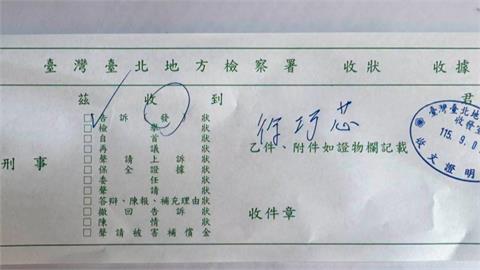 臺灣臺北地方檢察署 收狀 收據
茲 收 到 君
徐巧芯
刑事
□告訴發狀
□檢舉狀
□自首狀
□再議狀
□聲請上訴狀
□保全證據狀
□委任狀
□聲請狀
□答辯、陳報、補充理由狀
□撤回告訴狀
□陳情狀
□聲請被害補償金
乙件、附件如證物欄記載
收件章
臺灣臺北地
收發室
115.9.0
收文證明